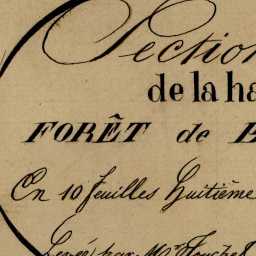 Section
de la ha
FORÊT de B
En 10 feuilles huitième
Levée par Mr